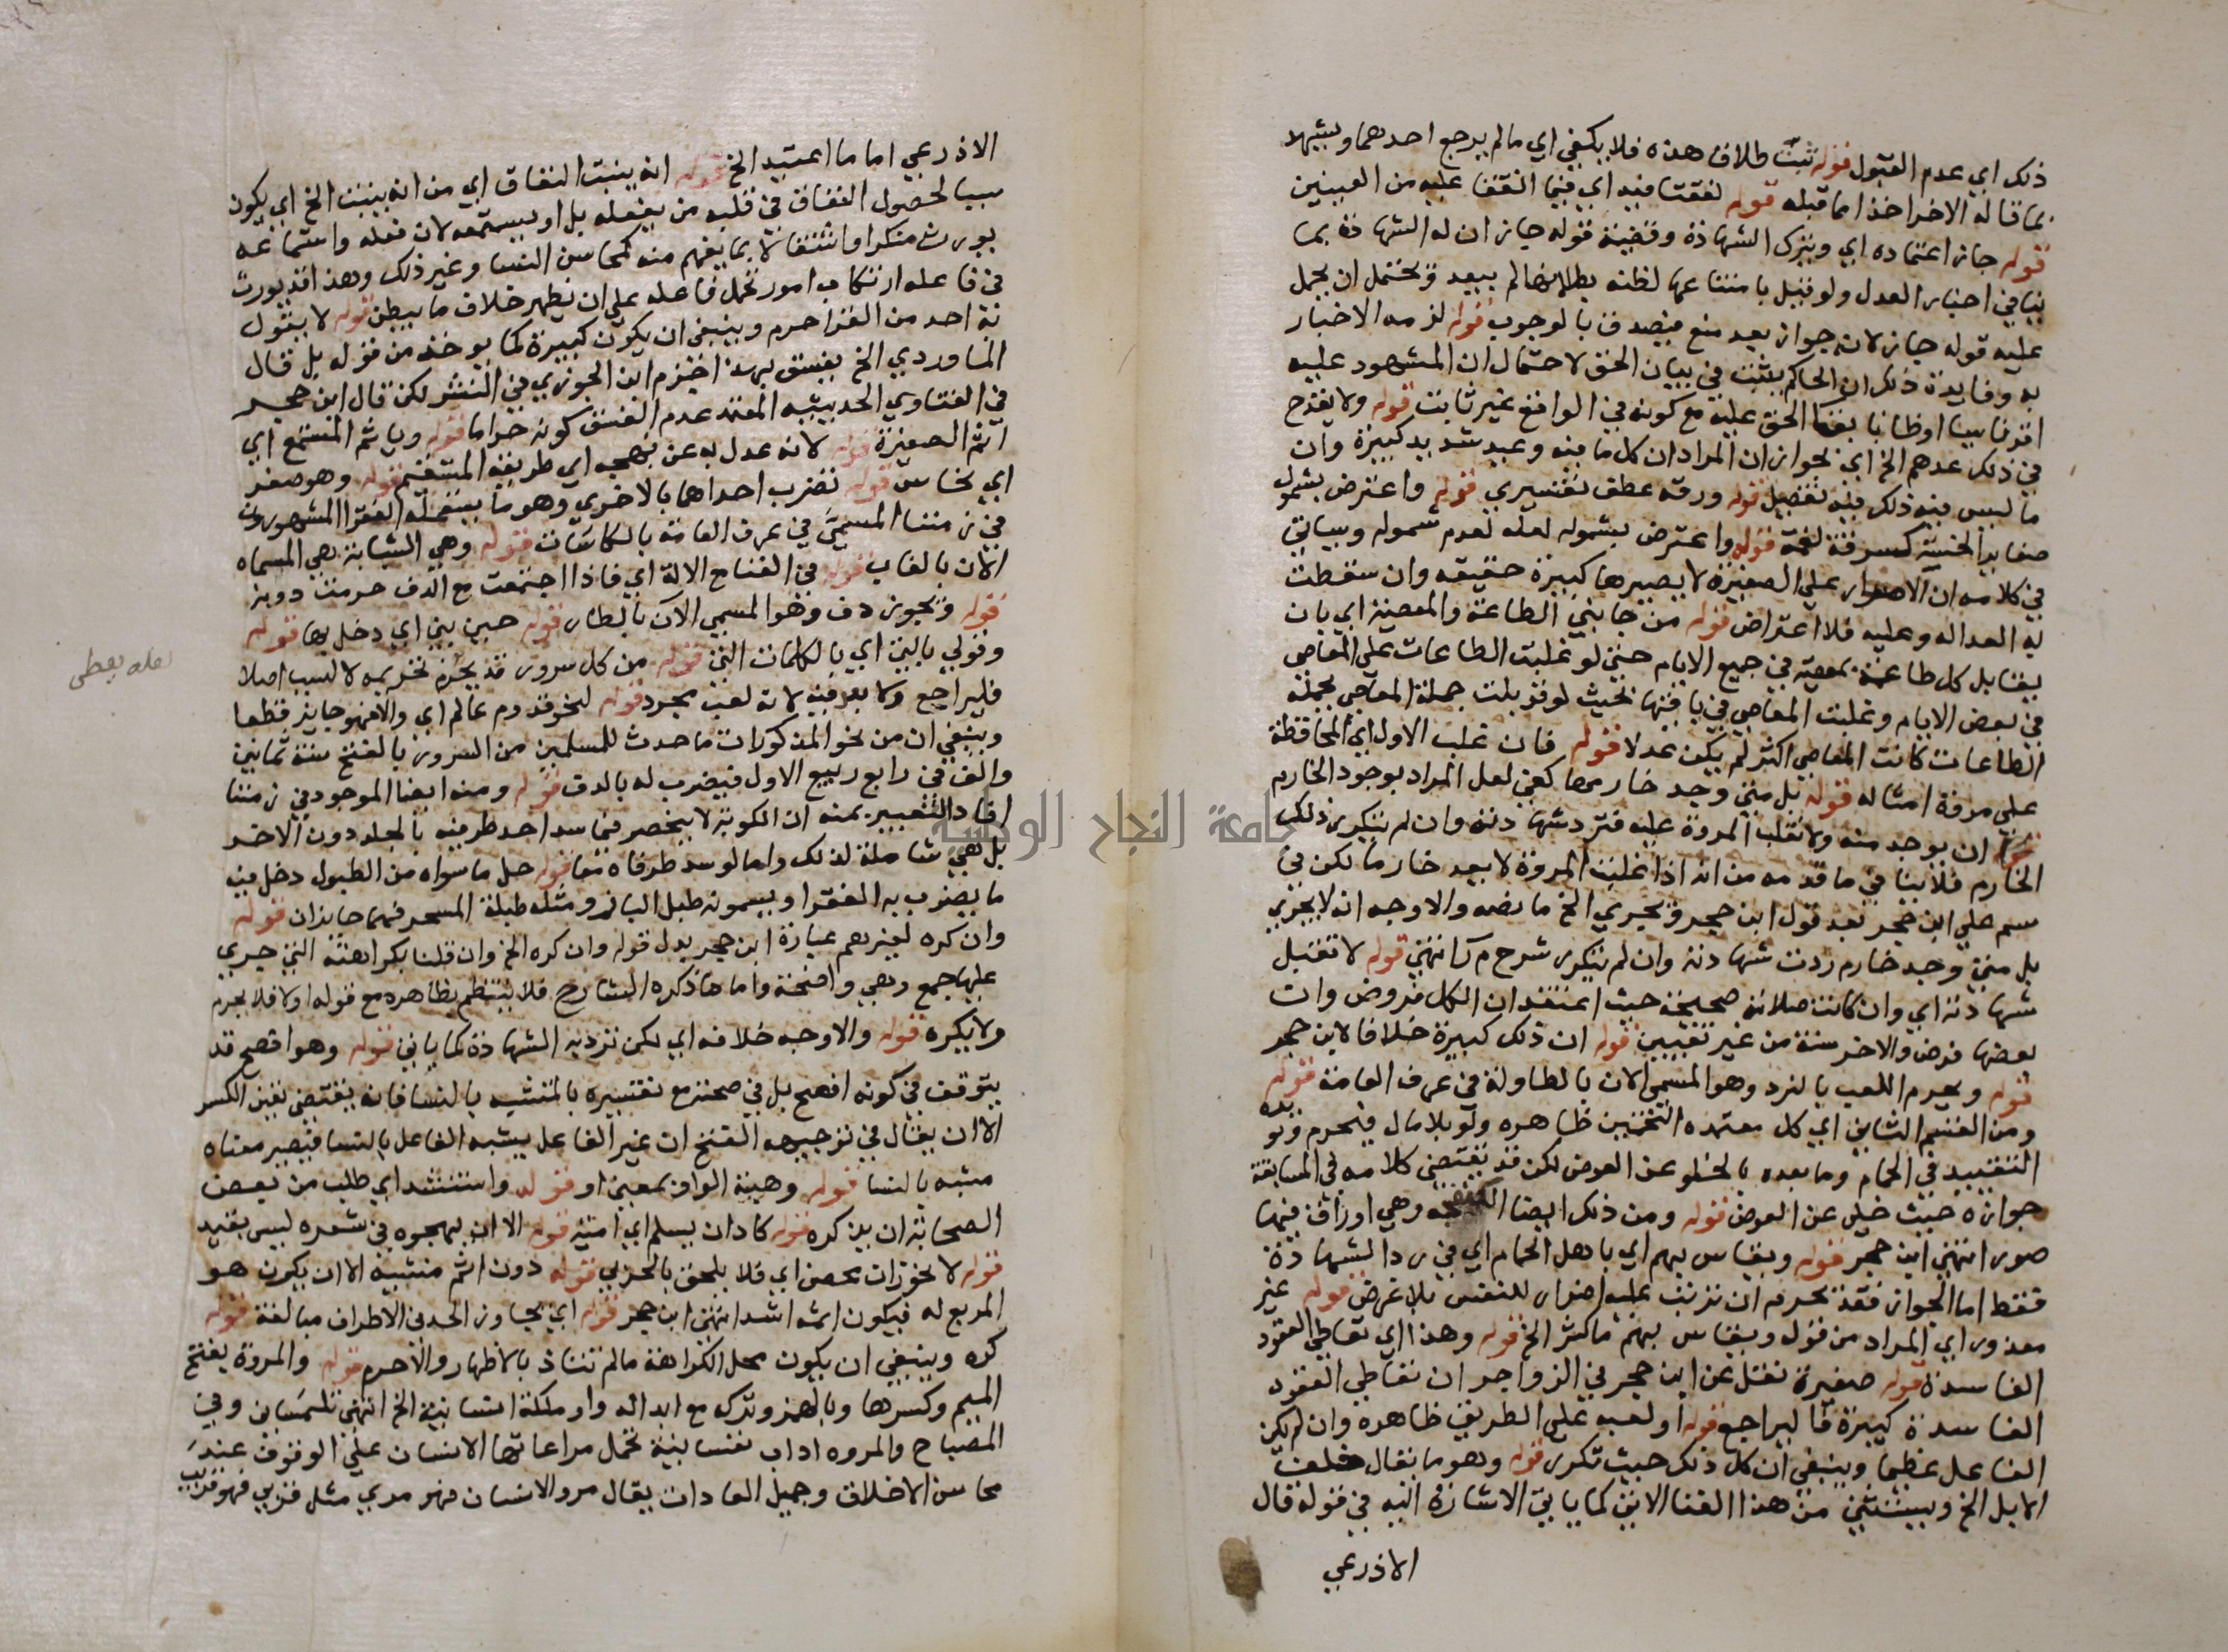 ذلك اي عدم القبول قوله ثبت طلاق هذه فلا يكفي اي ما لم يرجع احدهما ويشهد
بما قاله الاخر اخذا مما قبله قوله لفقتا فيه اي فيما اتفقا عليه من العينين
قوله جاز اعتماده اي ويترك الشهادة وقضية قوله جاز ان له الشهادة بما
ينافي اخبار العدل ولو قيل بامتناعها لظنه بطلانها لم يبعد ويحتمل ان يحمل
عليه قوله جاز لانه جواز بعد منع فيصدق بالوجوب قوله لزمه الاخبار
به وفايدة ذلك ان الحاكم يتثبت في بيان الحق لاحتمال ان المشهود عليه
اقر ناسيا او ظانا بقا الحق عليه مع كونه في الواقع غير ثابت قوله ولا يقدح
في ذلك عدهم الخ اي لجواز ان المراد ان كل ما فيه وعيد شديد كبيرة وان
ما ليس فيه ذلك فيه تفصيل قوله ورقه عطف تفسيري قوله واعترض بشمول
صغاير الخسة كسرقة لقمة قوله واعترض بشموله لعله لعدم شموله وسياتي
في كلامه ان الاصرار على الصغيرة لا يصيرها كبيرة حقيقه وان سقطت
به العداله وعليه فلا اعتراض قوله من جانبي الطاعة والمعصية اي بان
يقابل كل طاعة بمعصية في جميع الايام حتى لو غلبت الطاعات على المعاصي
في بعض الايام وغلبت المعاصي في باقيها بحيث لو قوبلت جملة المعاصي بجملة
الطاعات كانت المعاصي اكثر لم يكن عدلا قوله فان غلب الاول اي المحافظة
على مروة امثاله قوله بل متى وجد خارمها كفى لعل المراد بوجود الخارم
ان يوجد منه ولا تغلب المروة عليه فترد شهادته وان لم يتكرر ذلك
الخارم فلا ينافي ما قدمه من انه اذا غلبت المروة لا يعد خارما لكن في
سم على ابن حجر بعد قول ابن حجر ويجري الخ ما نصه والاوجه انه لا يجري
بل متى وجد خارم ردت شهادته وان لم يتكرر شرح م ر انتهى قوله لا تقبل
شهادته اي وان كانت صلاته صحيحة حيث اعتقد ان الكل فروض وان
بعضها فرض والاخر سنة من غير تعيين قوله ان ذلك كبيرة خلافا لابن حجر
قوله ويحرم اللعب بالنرد وهو المسمى الان بالطاولة في عرف العامة قوله
ومن القسم الثاني اي كل معتمده التخمين ظاهره ولو بلا مال فيحرم ويويده
التقييد في الحمام وما بعده بالخلو عن العوض لكن قد يقتضي كلامه في المسابقة
جوازه حيث خلى عن العوض قوله ومن ذلك ايضا الكنجفه وهي اوراق فيها
صور انتهى ابن حجر قوله ويقاس بهم اي باهل الحمام اي في رد الشهادة
فقط اما الجواز فقد يحرم ان ترتب عليه اضرار للنفس بلا غرض قوله غير
معذور اي المراد من قوله ويقاس بهم ما كثر الخ قوله وهذا اي تعاطي العقود
الفاسدة قوله صغيرة نقل عن ابن حجر في الزواجر ان تعاطي العقود
الفاسدة كبيرة فاليراجع قوله او لعبه على الطريق ظاهره وان لم يكن
الفاعل عظيما وينبغي ان كل ذلك حيث تكرر قوله وهو ما يقال خلف
الابل الخ ويستثنى من هذا الغنا الاتي كما ياتي الاشارة اليه في قوله قال
الاذرعي
الاذرعي اما ما اعتيد الخ قوله انه ينبت النفاق اي من انه ينبت الخ اي يكون
سببا لحصول النفاق في قلب من يفعله بل او يستمعه لان فعله واستماعه
يورث منكرا واشتغالا بما يفهم منه كمحاسن النسا وغير ذلك وهذا قد يورث
في فاعله ارتكاب امور تحمل فاعله على ان يظهر خلاف ما يبطن قوله لا بقول
نه احد من القراحرم وينبغي ان يكون كبيرة كما يوخذ من قوله بل قال
الماوردي الخ بفسق بهذا اخيرم ابن الجوزي في النشر لكن قال ابن حجر
في الفتاوي الحديثيه المعتمد عدم الفسق كونه حراما قوله وياثم المستمع اي
اثم الصغيرة قوله لانه عدل به عن نهجه اي طريقه المستقيم قوله وهو صفر
اي نحاس قوله تضرب احداهما بالاخرى وهو ما يستعمله الفقرا المشهورون
في زمننا المسمى في عرف العامة بالكاسات قوله وهي الشبابة هي المسماه
الان بالغاب قوله في الغنا مع الالة اي فاذا اجتمعت مع الدف حرمت دونه
قوله ويجوز دف وهو المسمى الان بالطار قوله حين بنى اي دخل بها قوله
وقولي بالتي اي بالكلمات التي قوله من كل سرور قد يخرج نحو يمه لا لسبب اصلا
فليراجع ولا بعد فيه لانه لعب مجرد قوله لنحو قدوم عالم اي والا فهو جايز قطعا
وينبغي ان من نحو المذكورات ما حدث للمسلمين من السرور بالفتح سنة ثمانين
والف في رابع ربيع الاول فيضرب له بالدف قوله ومنه ايضا الموجود في زمننا
افاد التعبير بمنه ان الكوبة لا ينحصر فيما سد احد طرفيه بالجلد دون الاخر
بل هي شاملة لذلك ولما لو سد طرفاه معا قوله حل ما سواه من الطبول دخل فيه
ما يضرب به الفقرا ويسمونه طبل الباز ومثله طبلة المسحر فهما جايزان قوله
وان كره لغيرهم عبارة ابن حجر بدل قوله وان كره الخ وان قلنا بكراهته التي جرى
عليها جمع وهي واضحة واما ما ذكره الشارح فلا ينتظم بظاهره مع قوله اولا فلا يحرم
ولا يكره قوله والاوجه خلافه اي لكن ترد به الشهادة كما ياتي قوله وهو افصح قد
يتوقف في كونه افصح بل في صحته مع تفسيره بالمتشبه بالنسا فانه يقتضي تعين الكسر
الا ان يقال في توجيهه الفتح ان غير الفاعل يشبه الفاعل بالنسا فيصير معناه
مشبه بالنسا قوله وهيئة الواو بمعنى او قوله واستنشد اي طلب من بعض
الصحابة ان يذكره قوله كاد ان يسلم اي امية قوله الا ان يهجوه في شعره ليس بقيد
قوله لا نحو زان محصن اي فلا يلحق بالحربي قوله دون اثم منشيه الا ان يكون هو
المربع له فيكون اثمه اشد انتهى ابن حجر قوله اي يجاوز الحد في الاطراف مبالغة قوله
كره وينبغي ان يكون محل الكراهة ما لم تتاذ بالاظهار والا حرم قوله والمروة بفتح
الميم وكسرها وبالهمز وتركه مع ابداله واو ملكة انسانية الخ انتهى تلمساني وفي
المصباح والمروه اداب نفسانية تحمل مراعاتها الانسان على الوقوف عند
محاسن الاخلاق وجميل العادات يقال مرو الانسان فهو مري مثل قرب فهو قريب
لعله يعطى
جامعة النجاح الوطنية